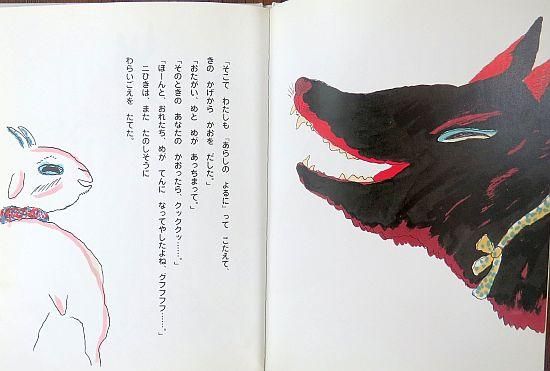 「そこで わたしも 「あらしの よるに」って こたえて、
きの かげから かおを だした。」
「おたがい、めと めが あっちまって。」
「そのときの あなたの かおったら、クッククッ……。」
「ほーんと、おれたち、めが てんに なってやしたよね、グフフフフ……。」
二ひきは、また たのしそうに
わらいごえを たてた。